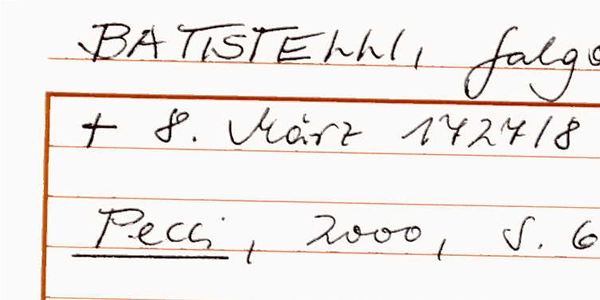 BATISTELLI, falgo
+ 8. März 1727/8
Pecci, 2000, S. 6